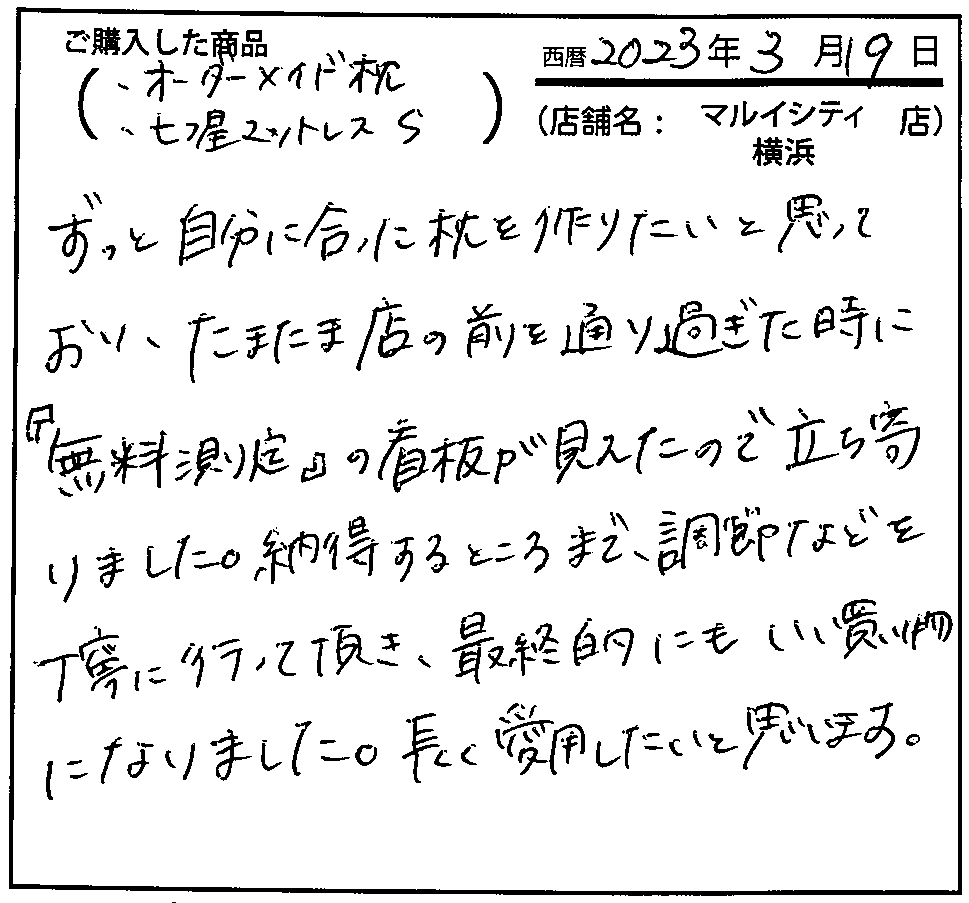 ご購入した商品
西暦2023年3月19日
(・オーダーメイド枕
・七つ星マットレスS)
(店舗名: マルイシティ横浜 店)
ずっと自分に合った枕を作りたいと思って
おり、たまたま店の前を通り過ぎた時に
『無料測定』の看板が見えたので立ち寄
りました。納得するところまで、調節などを
丁寧に行って頂き、最終的にもいい買い物
になりました。長く愛用したいと思います。